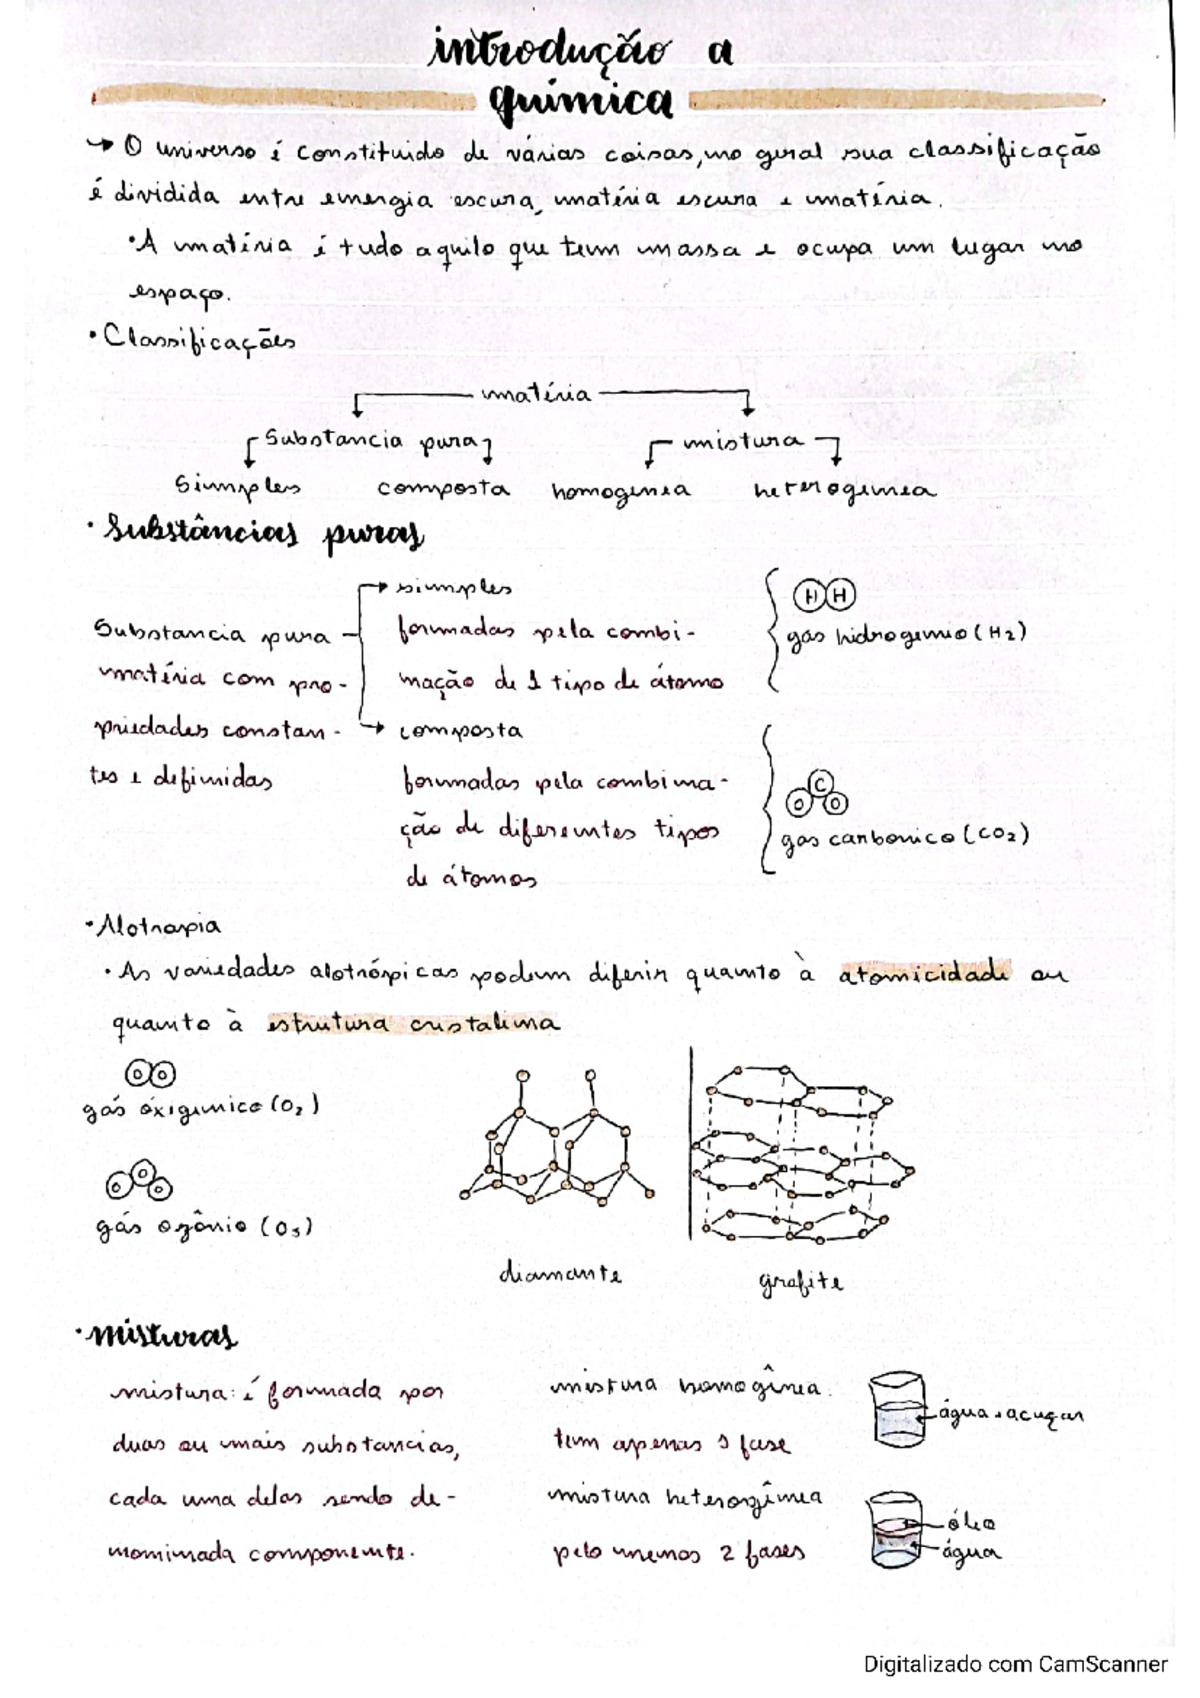 introdução a
química
→ O universo é constituido de várias coisas, no geral sua classificação
é dividida entre energia escura, matéria escura e matéria.
•A matéria é tudo aquilo que tem massa e ocupa um lugar no
espaço.
•Classificações
matéria
Substancia pura mistura
Simples composta homogenea heterogenea
•Substâncias puras
simples
Substancia pura
formadas pela combi-
H H
gas hidrogenio (H2)
matéria com pro-
nação de 1 tipo de átomo
priedades constan-
composta
tes e definidas
formadas pela combina-
ção de diferentes tipos
de átomos
C
O O
gas carbonico (CO2)
•Alotropia
•As variedades alotrópicas podem diferir quanto à atomicidade ou
quanto à estrutura cristalina
O O
gás óxigenico (O2)
O O O
gás ozônio (O3)
diamante
grafite
•misturas
mistura: é formada por
duas ou mais substancias,
cada uma delas sendo de-
nominada componente.
mistura homogênea.
tem apenas 1 fase
água + acuçar
mistura heterogênea
pelo menos 2 fases
óleo
água
Digitalizado com CamScanner